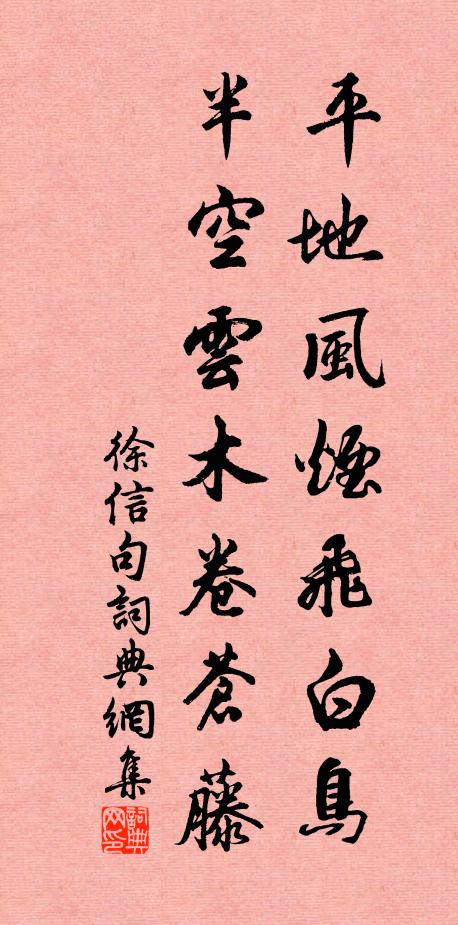 平地風煙飛白鳥
半空雲木卷蒼藤
徐信句詞典網集
詞典网印